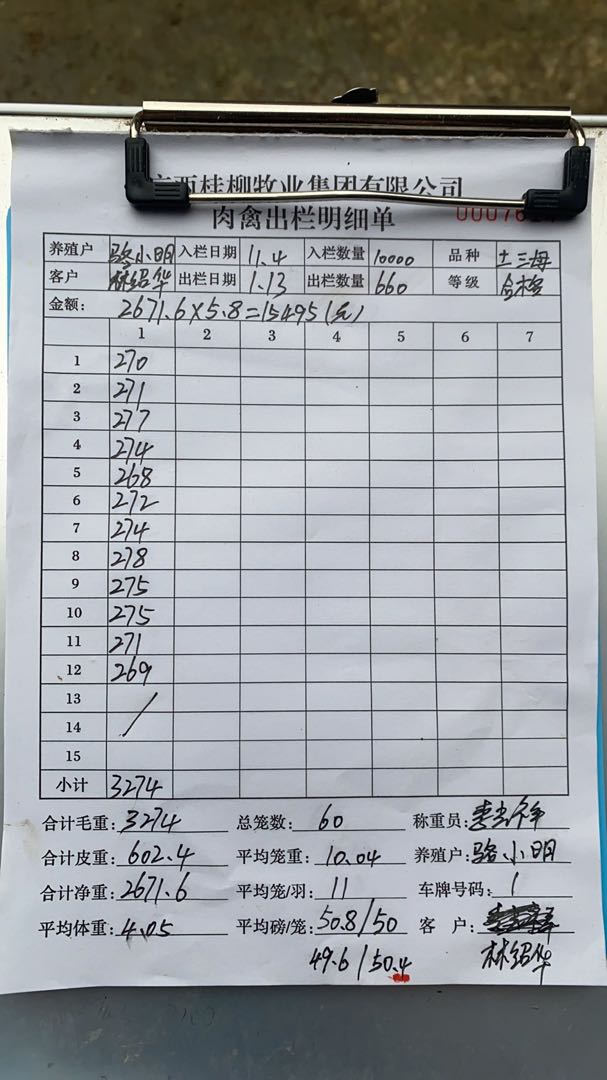 广西桂柳牧业集团有限公司
肉禽出栏明细单
养殖户 骆小明 入栏日期 11.4 入栏数量 10000 品种 土三梅
客户 林绍华 出栏日期 1.13 出栏数量 660 等级 合格
金额: 2671.6×5.8=15495(元)
1 2 3 4 5 6 7
1 270
2 271
3 277
4 274
5 268
6 272
7 274
8 278
9 275
10 275
11 271
12 269
13
14
15
小计 3274
合计毛重: 3274 总笼数: 60 称重员:
合计皮重: 602.4 平均笼重: 10.04 养殖户: 骆小明
合计净重: 2671.6 平均笼/羽: 11 车牌号码: 1
平均体重: 4.05 平均磅/笼: 50.8/50 客户:
49.6/50.4 林绍华